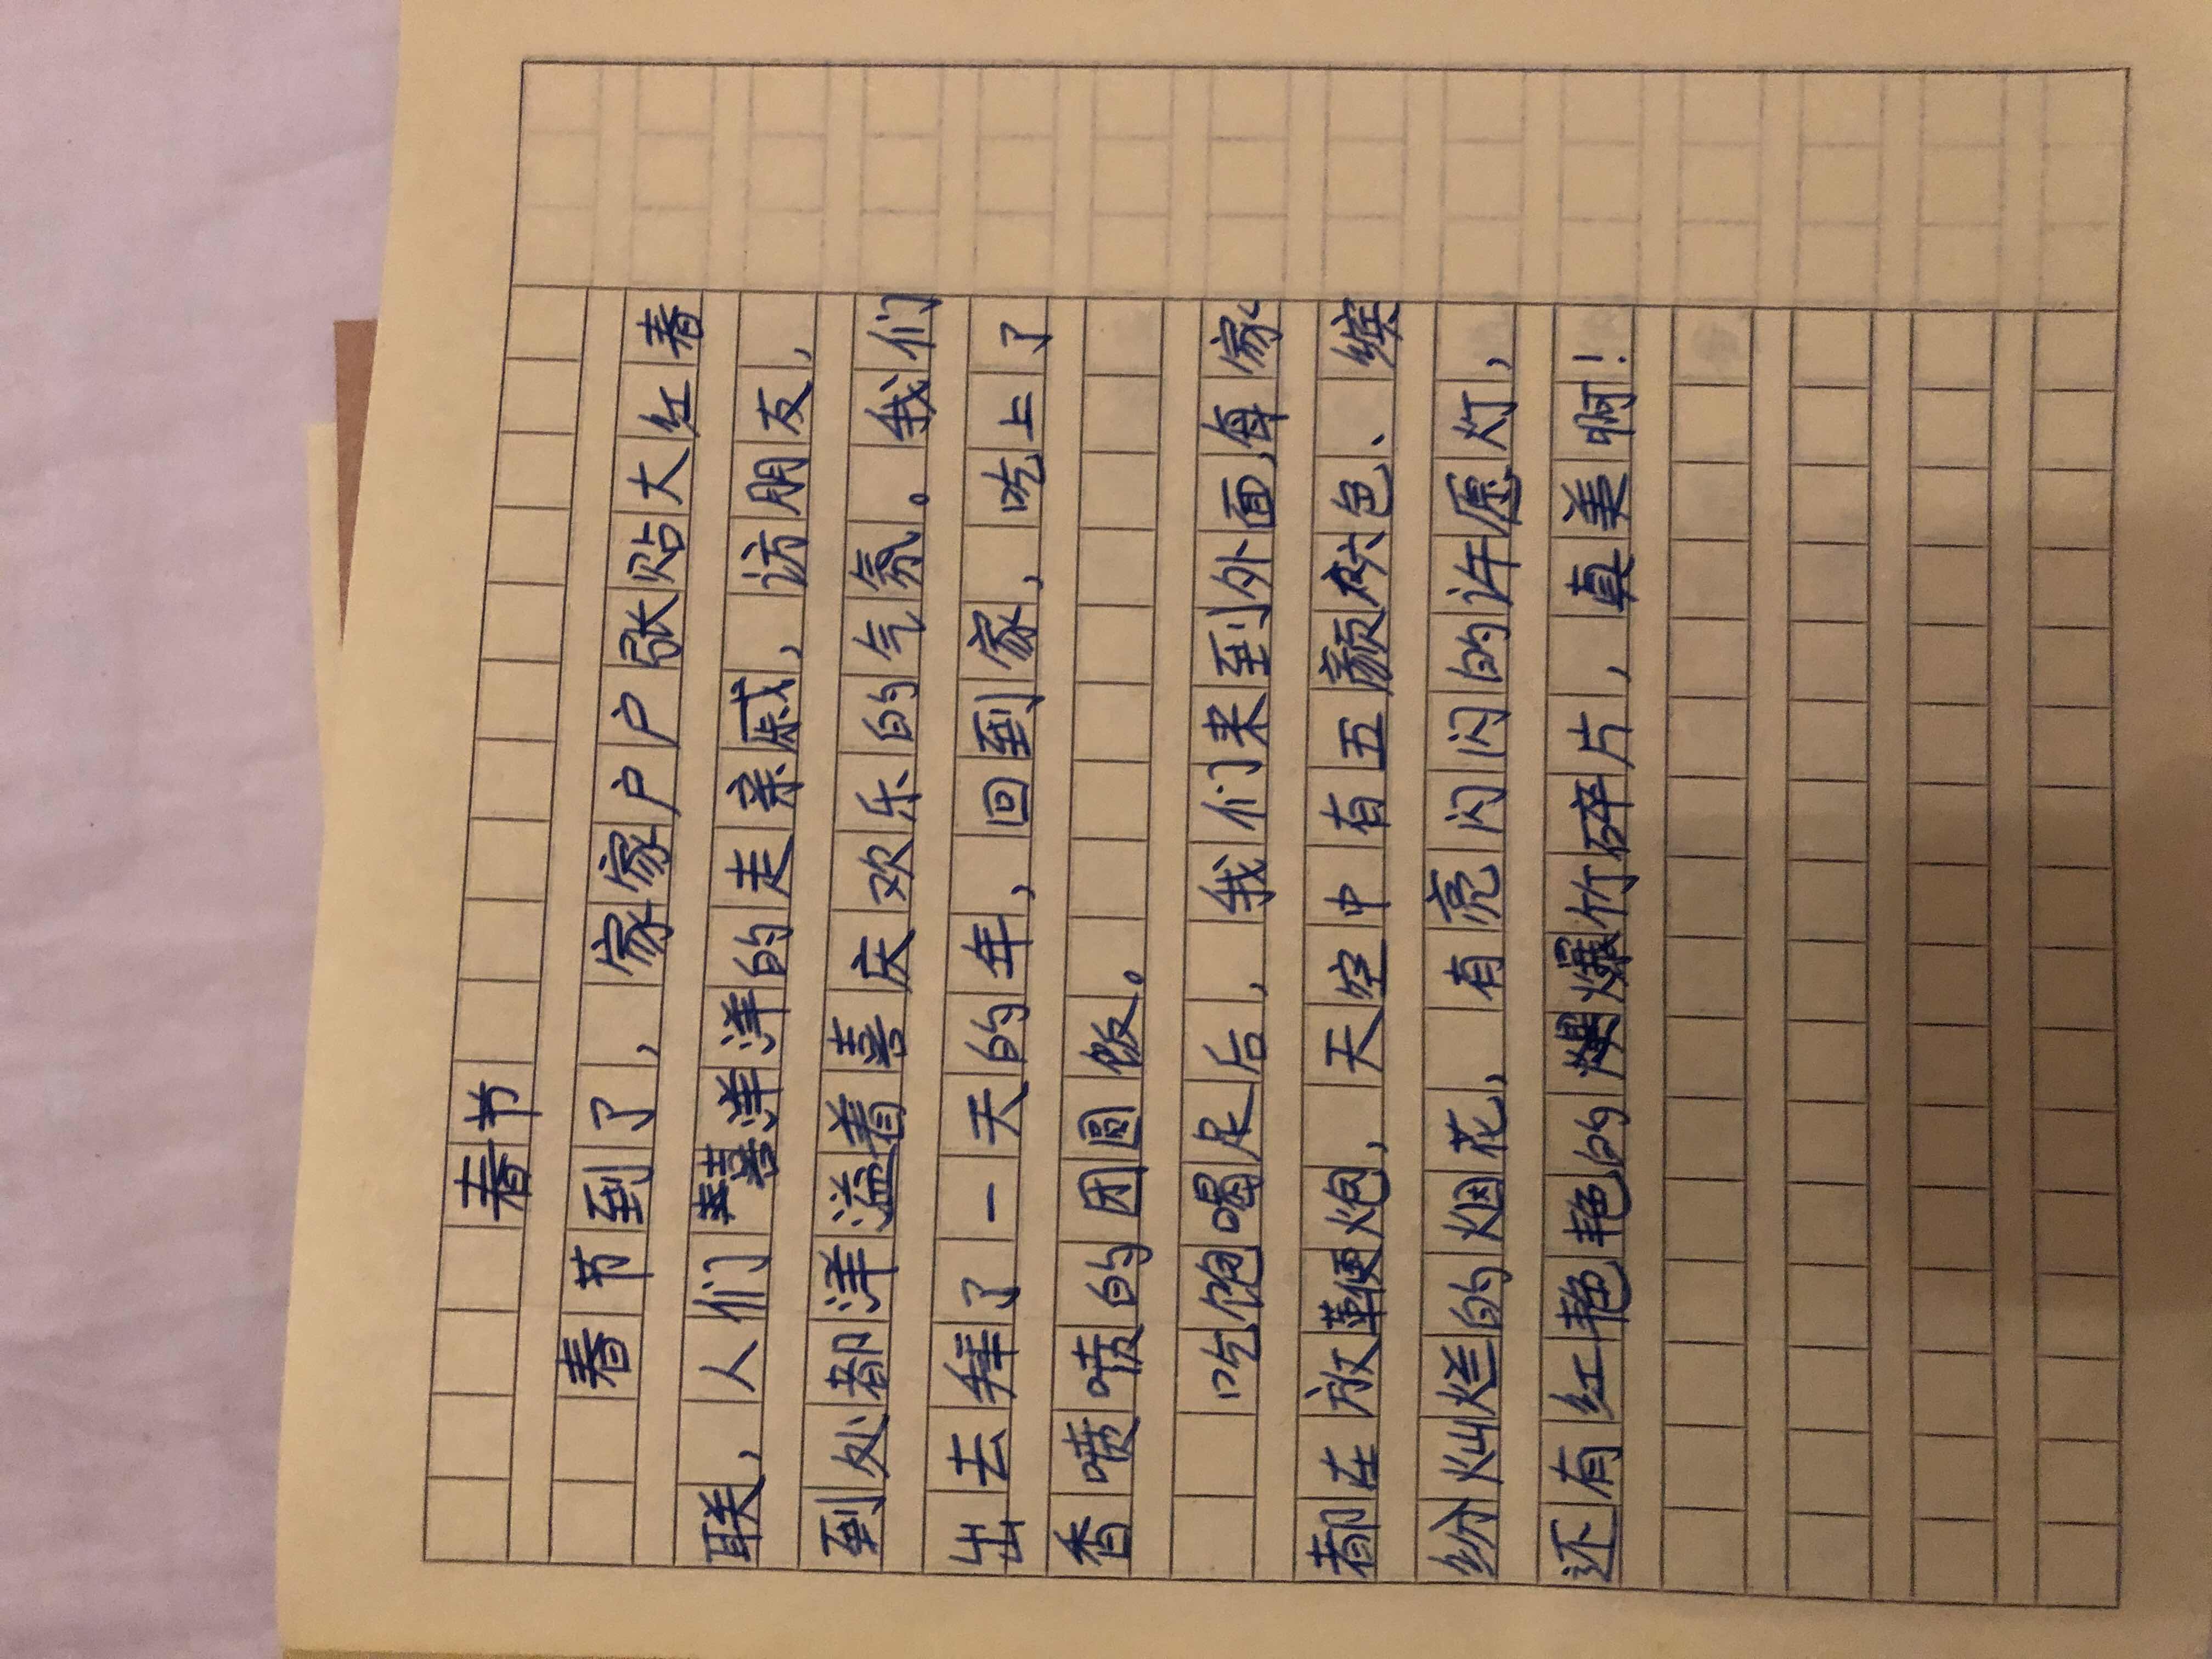 春节
春节到了，家家户户张贴大红春
联，人们喜洋洋的走亲戚，访朋友，
到处都洋溢着喜庆欢乐的气氛。我们
出去拜了一天的年，回到家，吃上了
香喷喷的团圆饭。
吃饱喝足后，我们来到外面，每家
都在放鞭炮，天空中有五颜六色、缤
纷灿烂的烟花，有亮闪闪的许愿灯，
还有红艳艳的爆竹碎片，真美啊！